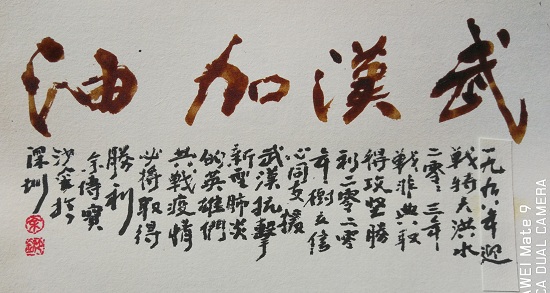 武漢加油
一九九八年迎
戰特大洪水
二零零三年
戰非典取
得攻堅勝
利二零二零
年樹立信
心同支援
武漢抗擊
新型肺炎
的英雄們
共戰疫情
必將取得
勝利
余傳寶
於
深圳
AWEI Mate 9
CA DUAL CAMERA